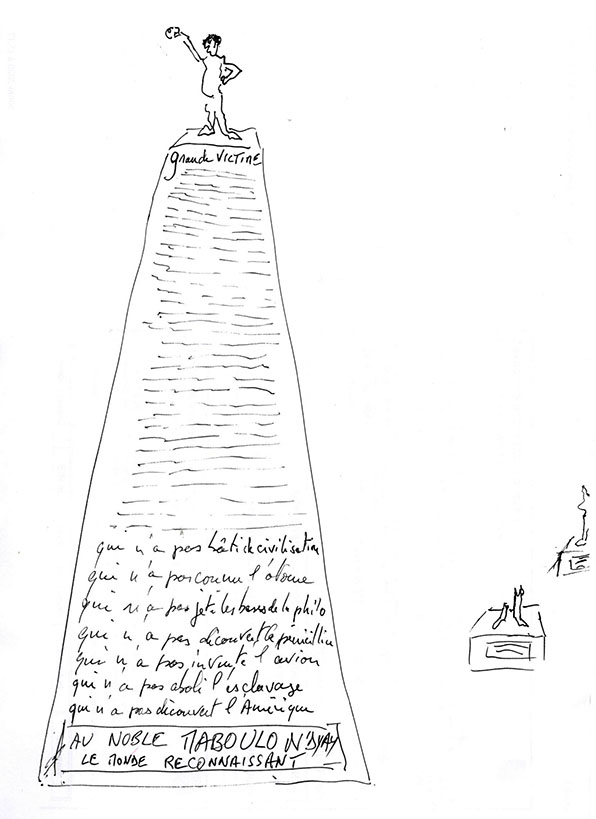 grande VICTIME
qui n'a pas bâti de civilisation
qui n'a pas connu l'atome
qui n'a pas jeté les bases de la philo
qui n'a pas découvert la pénicilline
qui n'a pas inventé l'avion
qui n'a pas aboli l'esclavage
qui n'a pas découvert l'Amérique
AU NOBLE MABOULO N'DYAY
LE MONDE RECONNAISSANT